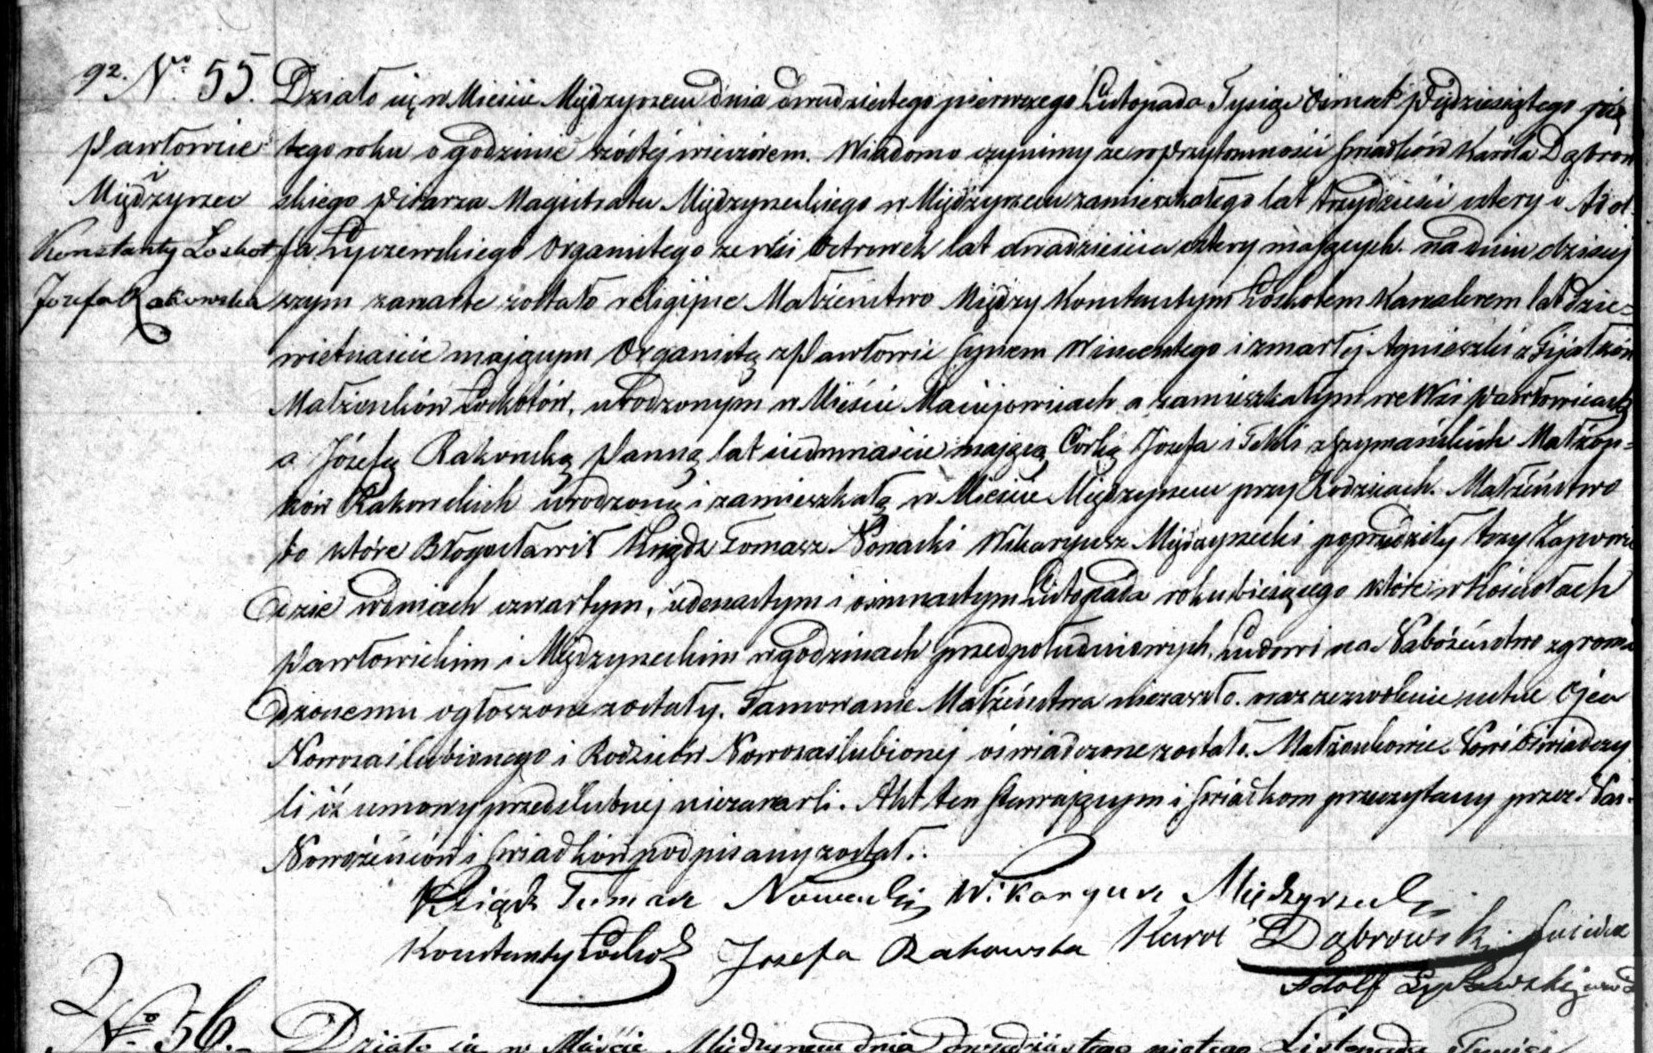 92. No. 55. Działo się w Mieście Międzyrzecu dnia dwudziestego pierwszego Listopada Tysiąc Ośmset Pięćdziesiątego pią
Pawłowice tego roku o godzinie szóstej wieczorem. Wiadomo czynimy że w przytomności świadków Karóla Dąbrow
Międzyrzec skiego Pisarza Magistratu Międzyrzeckiego w Międzyrzecu zamieszkałego lat trzydzieści cztery i Adol-
Konstanty Loskot fa Łyczewskiego Organistego ze wsi Ostrowek lat dwadzieścia cztery mających. na dniu dzisiej
Jozefa Rakowska szym zawarte zostało religijne Małżeństwo Między Konstantym Loskotem Kawalerem lat dzie-
więtnaście mającym Organistą z Pawłowic synem Wincentego i zmarłej Agnieszki z Fijałków
Małżonków Loskotów, urodzonym w Mieście Maciejowicach a zamieszkałym we Wsi Pawłowicach
a Józefą Rakowską Panną lat siedmnaście mającą Córką Jozefa i Tekli z Szymańskich Małżon-
ków Rakowskich urodzoną i zamieszkałą w Mieście Międzyrzecu przy Rodzicach. Małżeństwo
to które Błogosławił Ksiądz Tomasz Nowacki Wikaryusz Międzyrzecki poprzedziły trzy Zapowie
dzie w dniach czwartym, jedenastym i ośmnastym Listopada roku bieżącego które w Kościołach
Pawłowickim i Międzyrzeckim w godzinach przedpołudniowych, Ludowi na Nabożeństwo zgroma
dzonemu ogłoszone zostały. Tamowanie Małżeństwa niezaszło. zezwolenie ustne Ojca
Nowozaślubionego i Rodziców Nowozaślubionej oświadczone zostało. Małżonkowie Nowi Oświadczy
li iż umowy przedślubnej niezawarli. Akt ten stawającym i świadkom przeczytany przez Nas
Nowożeńców i świadków podpisany został.
Ksiądz Tomasz Nowacki Wikaryusz Międzyrzecki
Konstanty Loskot Jozefa Rakowska Karol Dąbrowski swiadek
Adolf Łyczewski
No. 56. Działo się w Mieście Międzyrzecu dnia dwudziestego piątego Listopada Tysiąc